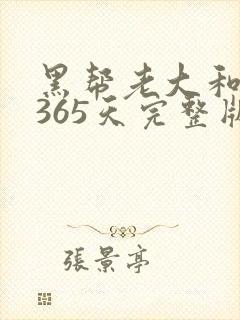 黑帮老大和
365天完整版
張景亭